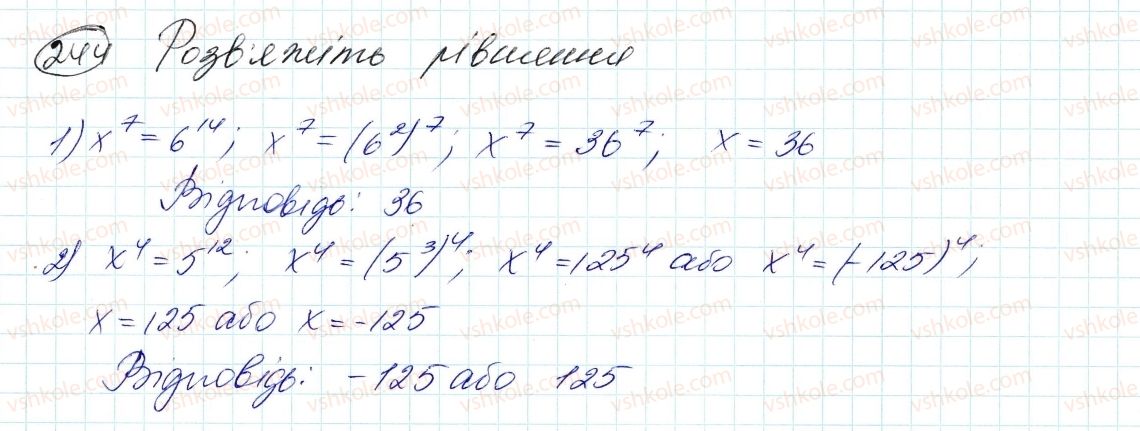 244 Розв'яжіть рівняння
1) x^7 = 6^14; x^7 = (6^2)^7; x^7 = 36^7; x = 36
Відповідь: 36
2) x^4 = 5^12; x^4 = (5^3)^4; x^4 = 125^4 або x^4 = (-125)^4;
x = 125 або x = -125
Відповідь: -125 або 125
vshkole.com